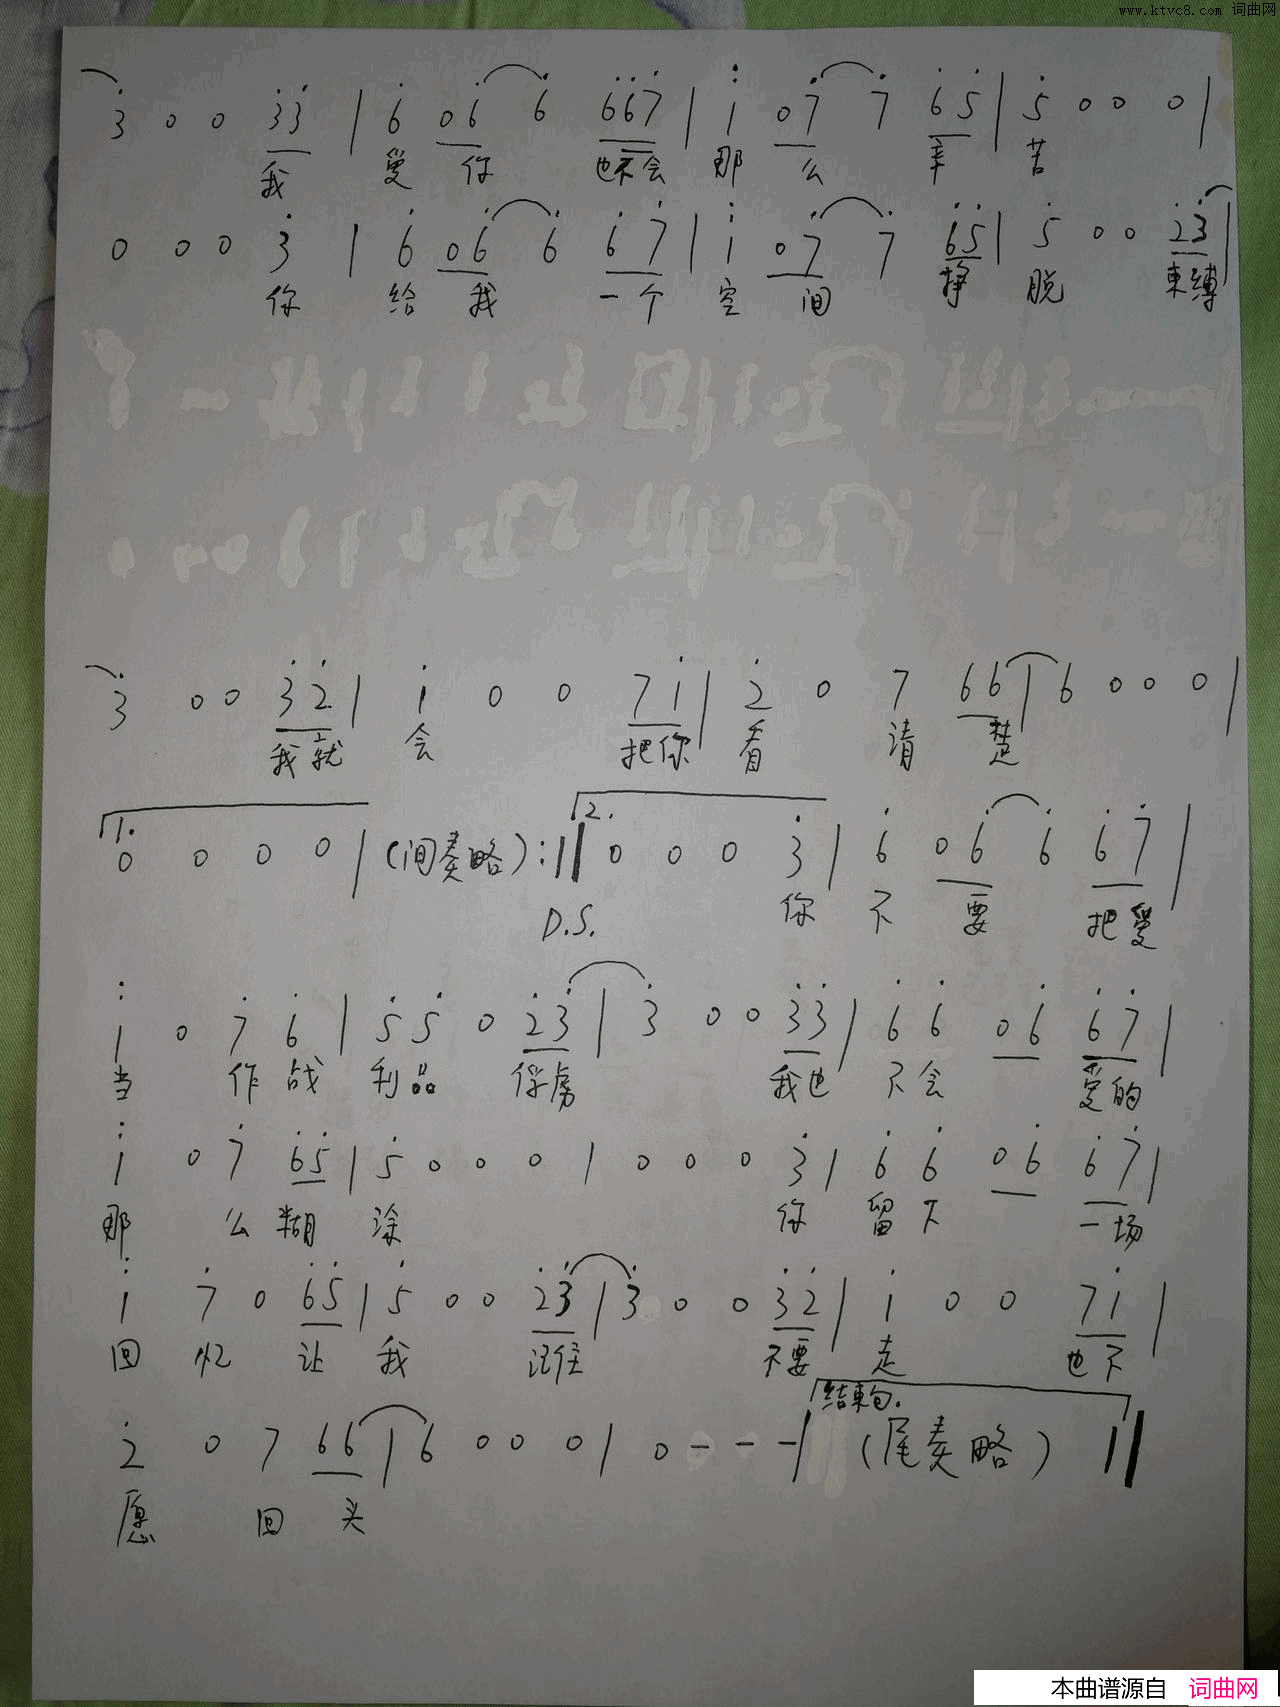 www.ktvc8.com 词曲网
3̇ 0 0 3̇3̇ | 6̇ 06̇ 6̇ 6̇6̇7̇ | 1̈ 07̇ 7̇ 6̇5̇ | 5̇ 0 0 0 |
我 爱 你 也不会 那 么 辛 苦
0 0 0 3̇ | 6̇ 06̇ 6̇ 6̇7̇ | 1̈ 07̇ 7̇ 6̇5̇ | 5̇ 0 0 2̇3̇ |
你 给 我 一个 空 间 挣 脱 束缚
3̇ 0 0 3̇2̇ | 1̇ 0 0 71̇ | 2̇ 0 7 66 | 6 0 0 0 |
我就 会 把你 看 清 楚
1. 2.
0 0 0 0 | (间奏略) :‖ 0 0 0 3̇ | 6̇ 06̇ 6̇ 6̇7̇ |
D.S. 你 不 要 把爱
1̈ 0 7̇ 6̇ | 5̇5̇ 0 2̇3̇ | 3̇ 0 0 3̇3̇ | 6̇6̇ 06̇ 6̇7̇ |
当 作 战 利品 俘虏 我也 不会 爱的
1̈ 0 7̇ 6̇5̇ | 5̇ 0 0 0 | 0 0 0 3̇ | 6̇6̇ 06̇ 6̇7̇ |
那 么 糊 涂 你 留下 一场
1̈ 7̇ 0 6̇5̇ | 5̇ 0 0 2̇3̇ | 3̇ 0 0 3̇2̇ | 1̇ 0 0 71̇ |
回 忆 让 我 记住 不要 走 也不
结束句.
2̇ 0 7 66 | 6 0 0 0 | 0 - - - | (尾奏略) ‖
愿 回 头
本曲谱源自 词曲网